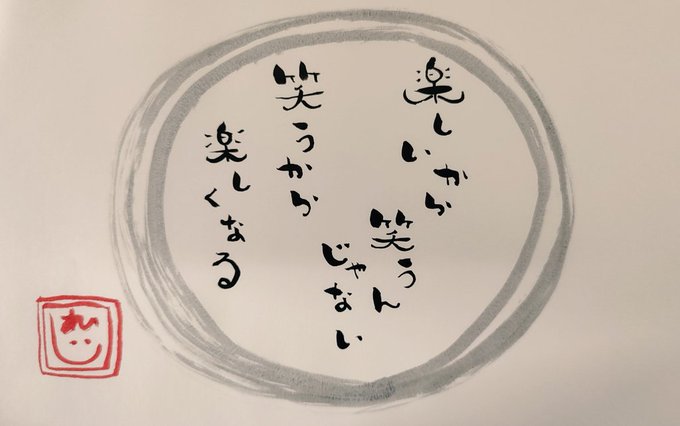 楽しいから
笑うん
じゃない
笑うから
楽しくなる